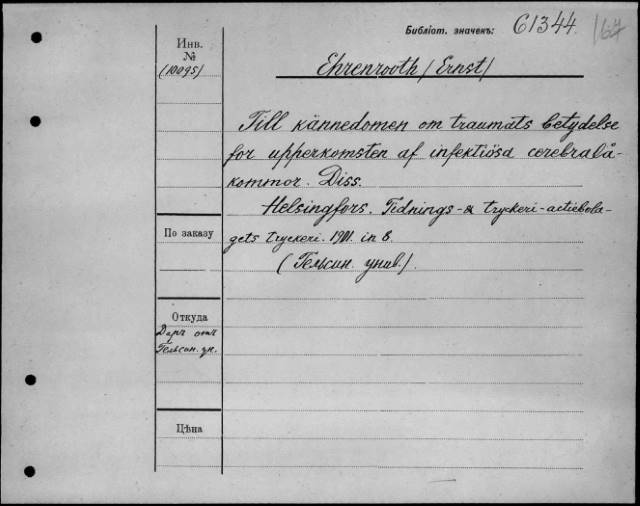 Библіот. значекъ: 61344. 167
Инв.
№
(10095)
Ehrenrooth /Ernst/
Till kännedomen om traumats betydelse
for upperkomsten af infektiösa cerebralå-
kommor. Diss.
Helsingfors. Tidnings- & tryckeri-actiebola-
gets tryckeri. 1901. in 8.
(Гельсин. унив.).
По заказу
Откуда
Даръ отъ
Гельсин. ун.
Цѣна